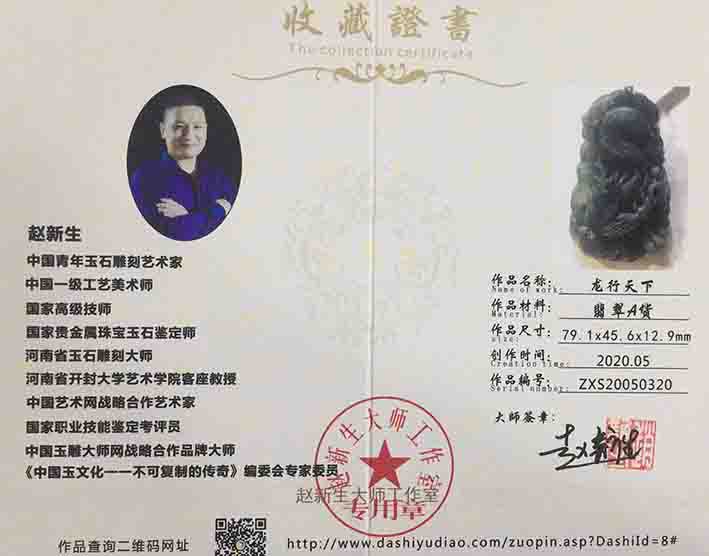 收藏證書
The collection certificate
赵新生
中国青年玉石雕刻艺术家
中国一级工艺美术师
国家高级技师
国家贵金属珠宝玉石鉴定师
河南省玉石雕刻大师
河南省开封大学艺术学院客座教授
中国艺术网战略合作艺术家
国家职业技能鉴定考评员
中国玉雕大师网战略合作品牌大师
《中国玉文化一一不可复制的传奇》编委会专家委员
作品名称: 龙行天下
Name of work:
作品材料: 翡翠A货
Material:
作品尺寸: 79.1x45.6x12.9mm
size:
创作时间: 2020.05
Creation time:
作品编号: ZXS20050320
Serial number:
大师签章: 赵新生
赵新生大师工作室
专用章
赵新生大师工作室
作品查询二维码网址
http://www.dashiyudiao.com/zuopin.asp?DashiId=8#